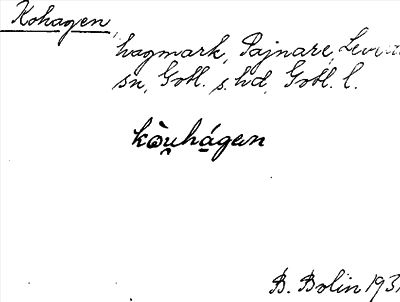 Kohagen,
hagmark, Pajnare,
sn, Gotl. s. hd, Gotl. l.
kòu̯hágen
B. Bolin 193